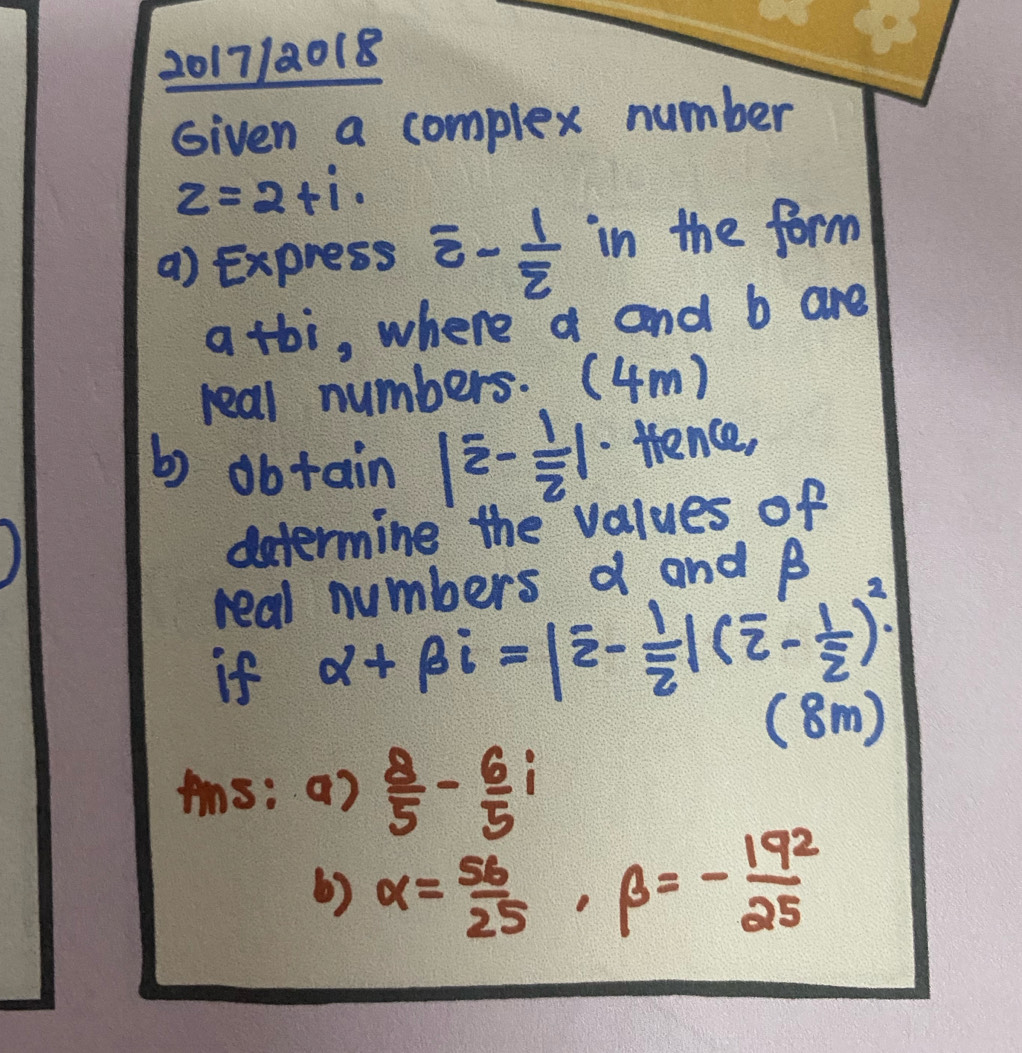 2017/2018
Given a complex number
z = 2 + i.
a) Express z̄ - 1/z̄ in the form
a + bi, where a and b are
real numbers. (4m)
b) Obtain |z̄ - 1/z̄|. Hence,
determine the values of
real numbers α and β
if α + βi = |z̄ - 1/z̄| (z̄ - 1/z̄)².
(8m)
Ans: a) 8/5 - 6/5 i
b) α = 56/25 , β = - 192/25